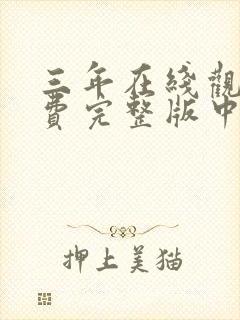 三年在綫觀
費完整版中
押上美猫